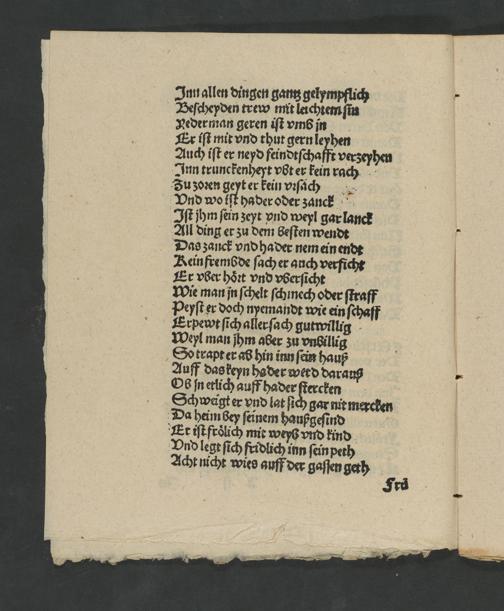 Inn allen dingen gantz gelympflich
Bescheyden trew mit leichtem sin
Yederman geren ist vmb jn
Er ist mit vnd thut gern leyhen
Auch ist er neyd feindtschafft verzeyhen
Inn trunckenheyt vbt er kein rach
Zu zoren geyt er kein vrsach
Vnd wo ist hader oder zanck
Ist jhm sein zeyt vnd weyl gar lanck
All ding er zu dem besten wendt
Das zanck vnd hader nem ein endt
Kein frembde sach er auch verficht
Er vber hört vnd vbersicht
Wie man jn schelt schmech oder straff
Peyst er doch nyemandt wie ein schaff
Erpewt sich aller sach gutwillig
Weyl man jhm aber zu vnbillig
So trapt er ab hin inn sein hauß
Auff das keyn hader werd darauß
Ob jn etlich auff hader stercken
Schweigt er vnd lat sich gar nit mercken
Da heim bey seinem haußgesind
Er ist frölich mit weyb vnd kind
Vnd legt sich fridlich inn sein peth
Acht nicht wies auff der gassen geth
Frü